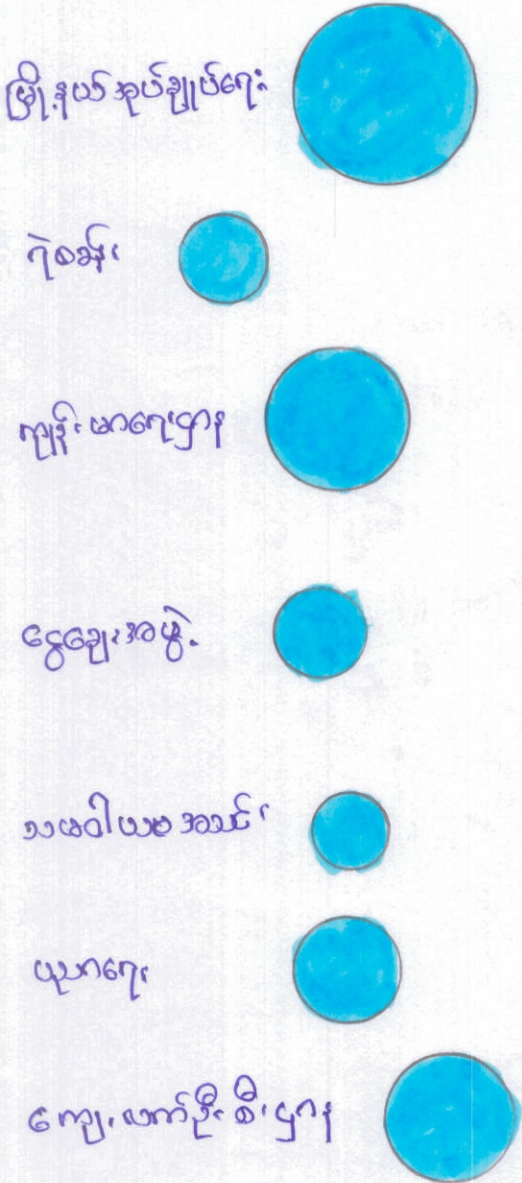 မြို့နယ်အုပ်ချုပ်ရေး
ရဲစခန်း
ကျန်းမာရေးဌာန
ငွေချေးအဖွဲ့
သမဝါယမအသင်း
ပညာရေး
ကျေးလက်ဦးစီးဌာန